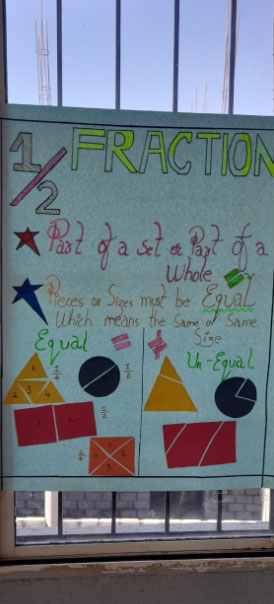 1/2 FRACTION
Part of a set or Part of a
Whole
Pieces or Sizes must be Equal
Which means the Same or Same
Size
Equal = ≠ Un-Equal
1
2 3 4
1/4
1/2
1 2
1/2
1
2
3